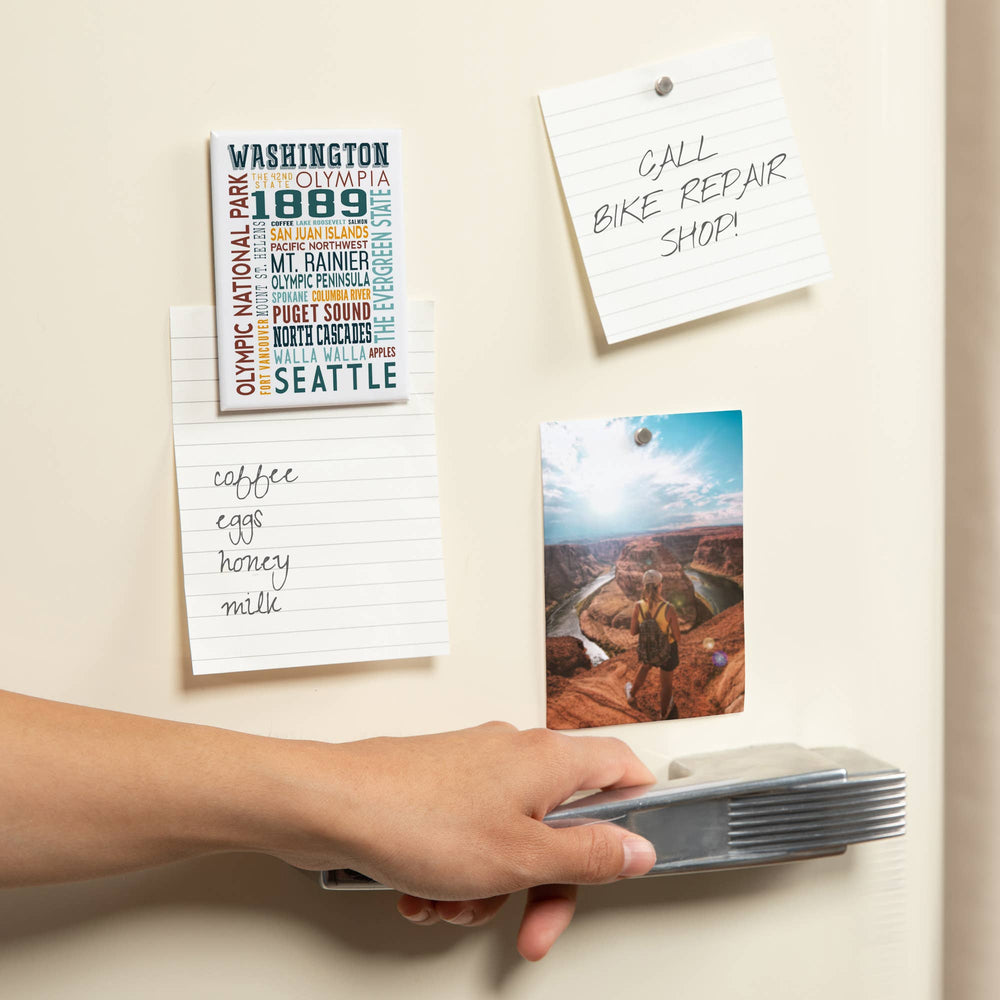 WASHINGTON
THE 42ND
STATE
OLYMPIA
OLYMPIC NATIONAL PARK
1889
COFFEE LAKE ROOSEVELT SALMON
SAN JUAN ISLANDS
PACIFIC NORTHWEST
MOUNT ST. HELENS
MT. RAINIER
OLYMPIC PENINSULA
THE EVERGREEN STATE
SPOKANE COLUMBIA RIVER
PUGET SOUND
NORTH CASCADES
FORT VANCOUVER
WALLA WALLA APPLES
SEATTLE
coffee
eggs
honey
milk
CALL
BIKE REPAIR
SHOP!